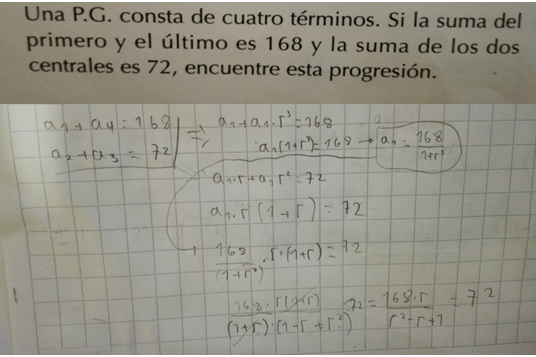 Una P.G. consta de cuatro términos. Si la suma del
primero y el último es 168 y la suma de los dos
centrales es 72, encuentre esta progresión.
a₁ + a₄ = 168
a₂ + a₃ = 72
a₁ + a₁·r³ = 168
a₁(1+r³) = 168 → a₁ = 168/(1+r³)
a₁·r + a₁r² = 72
a₁·r(1+r) = 72
168/(1+r³) · r·(1+r) = 72
168·r(1+r)/((1+r)·(1-r+r²)) 72 = 168·r/(r²-r+1) = 72